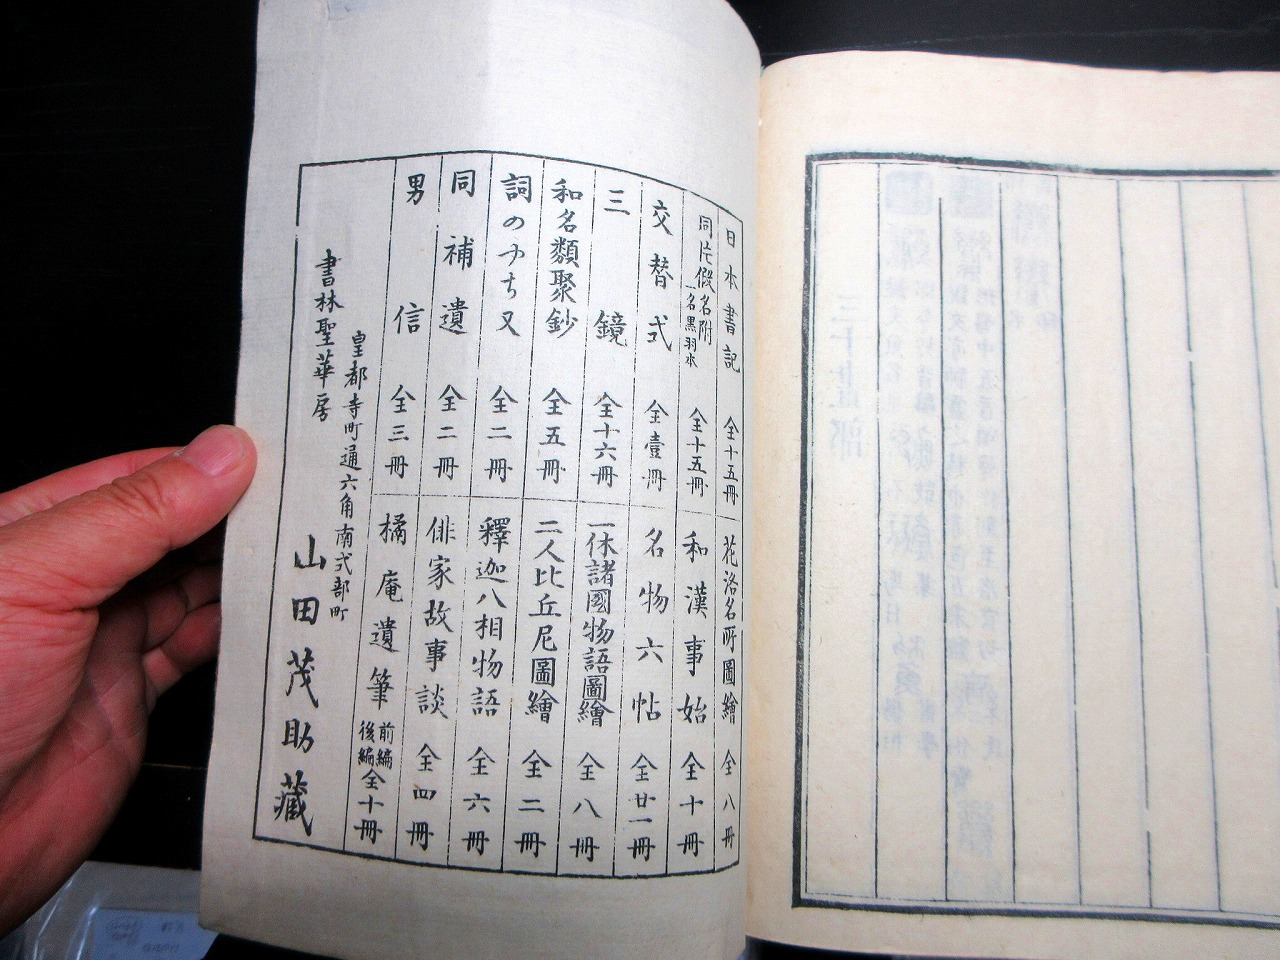 日本書記 全十五冊
同片假名附 一名黒羽本 全十五冊
交替式 全壹冊
三鏡 全十六冊
和名類聚鈔 全五冊
詞のやちまた 全二冊
同補遺 全二冊
男信 全三冊
花洛名所圖繪 全八冊
和漢事始 全十冊
名物六帖 全廿一冊
一休諸國物語圖繪 全八冊
二人比丘尼圖繪 全二冊
釋迦八相物語 全六冊
俳家故事談 全四冊
橘庵遺筆 前編 後編 全十冊
皇都寺町通六角南式部町
書林聖華房 山田茂助藏